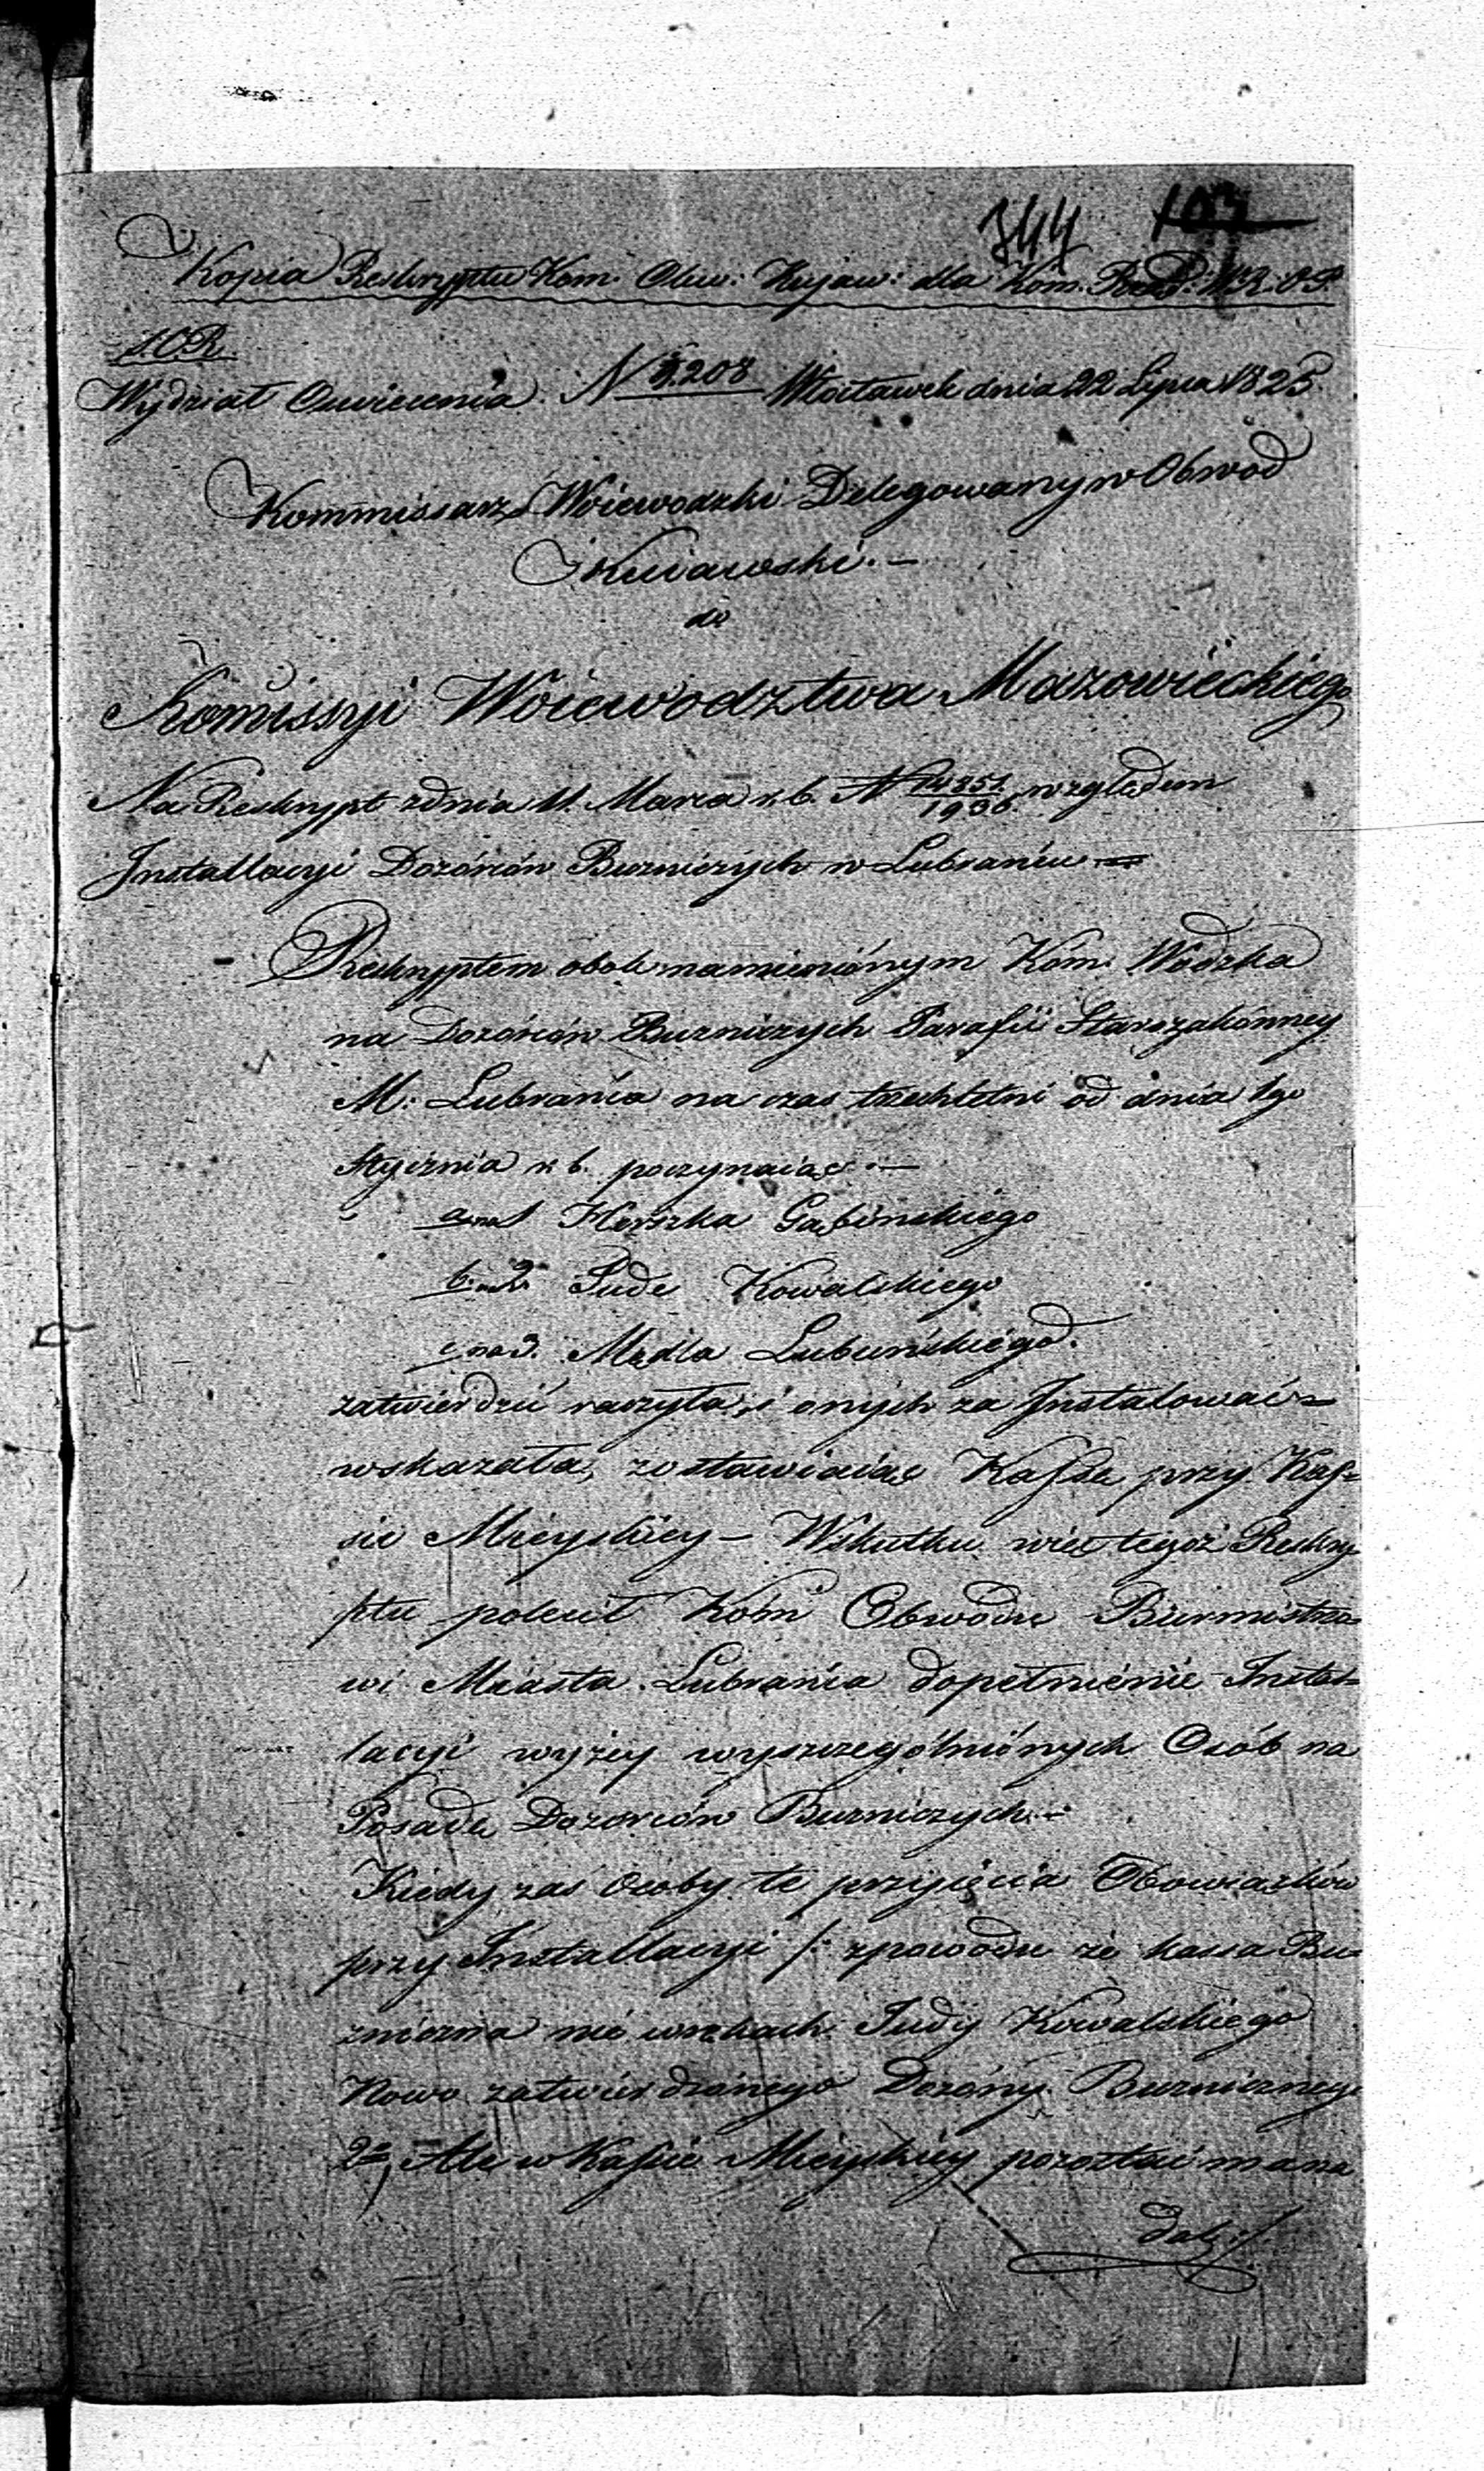 744 103
Kopia Reskryptu Kom. Obw: Kujaw: dla Kom. Rząd: W.R.O.P.
S.O.R.
Wydział Oswiecenia. N 5.208 Włocławek dnia 22 Lipca 1825.
Kommissarz Woiewodzki Delegowany w Obwod
Kuiawski. —
do
Komissyi Woiewodztwa Mazowieckiego
Na Reskrypt zdnia 11. Marca r. b. N 14851/1936 względem
Installacyi Dozórców Bużniczych w Lubraniu =
- Reskryptem obok namienionym Kom. Wodzka
na Dozórców Bużniczych Parafii Starozakonney
M: Lubrania na czas trzechletni od dnia 1go
Stycznia r b. poczynaiąc. —
a na 1 Herszka Gąbińskiego
b. na 2. Jude Kowalskiego
c na 3. Mędla Lubińskiego.
zatwierdzić raczyła, i onych za Instalować =
wskazała, zostawiaiąc Kassę przy Kas=
sie Mieyskiey — Wskutku więc tegoż Reskry
ptu polecił Kom Obwodu Burmistrzo=
wi Miasta Lubrania dopełnienie Instal=
lacyi wyżey wyszczególnionych Osób na
Posadę Dozorców Bużniczych. —
Kiedy zaś Osoby te przyięcia Obowiązków
przy Installacyi /: zpowodu że kassa Bu=
żniczna nie wrękach Judy Kowalskiego
Nowo zatwierdzonego Dozórcy Bużnicznego
2o, Ale w Kassie Mieyskiey pozostać mana
Dal: /.